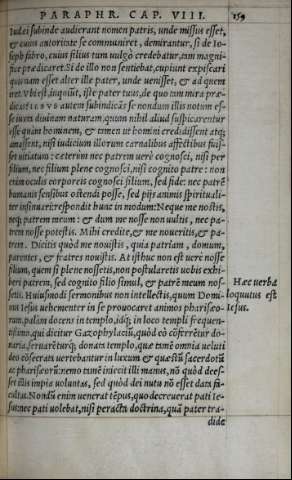 PARAPHR. CAP. VIII. 159
Iudei subinde audierant nomen patris, unde missus esset,
& cuius autoritate se communiret, demirantur, si de Io-
seph fabro, cuius filius tum uulgò credebatur, tam magni-
ficè prædicaret. Si de illo non sentiebat, cupiunt expiscari
quisnam esset alter ille pater, unde uenisset, & ad quem
iret. Vbi est, inquiunt, iste pater tuus, de quo tam mira præ-
dicas? IESVS autem subindicãs se nondum illis notum es-
se iuxta diuinam naturam, quum nihil aliud suspicarentur
esse quàm hominem, & tamen ut homini credidissent atq;
amassent, nisi iudicium illorum carnalibus affectibus fuis-
set uitiatum: cæterùm nec patrem uerè cognosci, nisi per
filium, nec filium plene cognosci, nisi cognito patre: non
enim oculis corporeis cognosci filium, sed fide: nec patrẽ
humanis sensibus ostendi posse, sed pijs animis spirituali-
ter insinuari: respondit hunc in modum: Neque me nostis,
neq; patrem meum: & dum me nosse non uultis, nec pa-
trem nosse potestis. Mihi credite, & me noueritis, & pa-
trem. Dicitis quòd me nouistis, quia patriam, domum,
parentes, & fratres nouistis. At isthuc non est uerè nosse
filium, quem si plene nossetis, non postularetis uobis exhi-
beri patrem, sed cognito filio simul, & patrẽ meum nos-
setis. Huiusmodi sermonibus non intellectis, quum Domi-
nus Iesus uehementer in se prouocaret animos phariseo-
rum, palàm docens in templo, idq; in loco templi frequen-
tissimo, qui dicitur Gazophylaciũ, quòd eò cõferrẽtur do-
naria, seruarẽturq; donata templo, quæ tamẽ omnia ueluti
deo cõsecrata uertebantur in luxum & quæstũ sacerdotũ
ac phariseorũ: nemo tamẽ iniecit illi manus, nõ quòd dees-
set illis impia uoluntas, sed quòd dei nutu nõ esset data fa-
cultas. Nondũ enim uenerat tẽpus, quo decreuerat pati Ie-
sus: nec pati uolebat, nisi peracta doctrina, quã pater tra-
didε
Hæc uerba
loquutus est
Iesus.